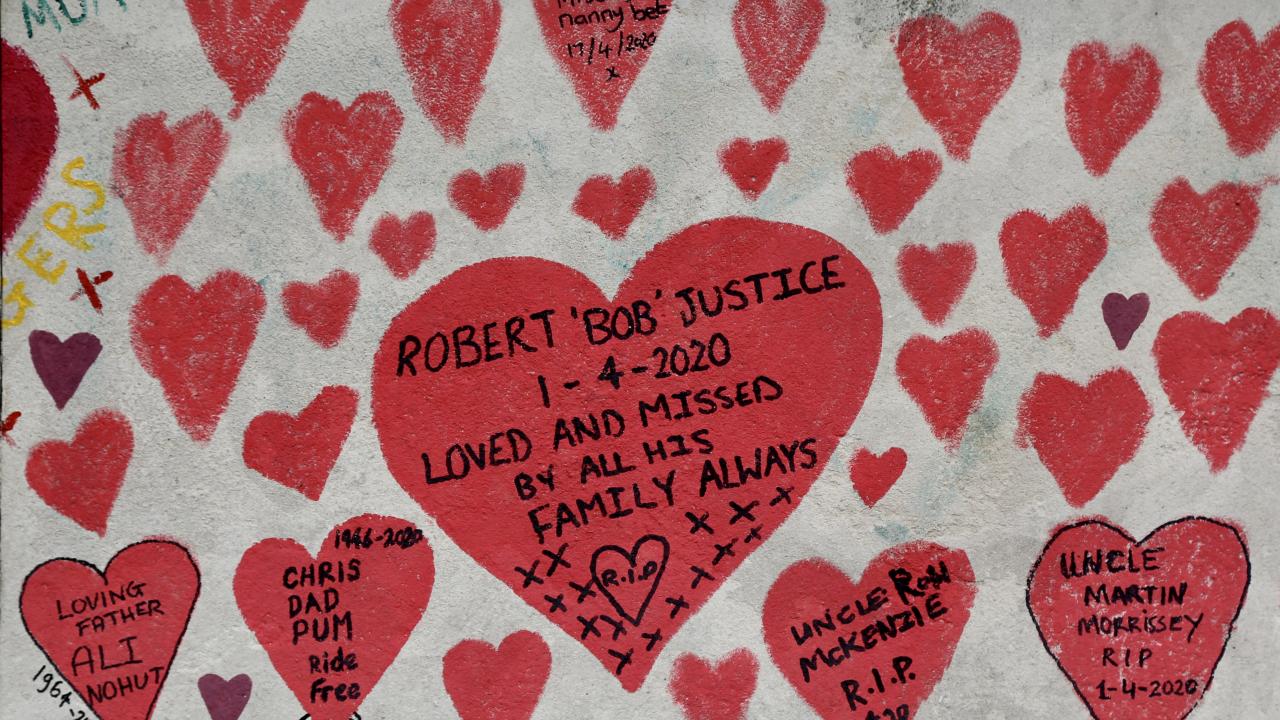 nanny bet
17/4/2020
x
GERS
ROBERT 'BOB' JUSTICE
1-4-2020
LOVED AND MISSED
BY ALL HIS
FAMILY ALWAYS
R.I.P
LOVING
FATHER
ALI
NOHUT
1946-2020
CHRIS
DAD
PUM
Ride
Free
UNCLE RON
McKENZIE
R.I.P.
UNCLE
MARTIN
MORRISSEY
RIP
1-4-2020